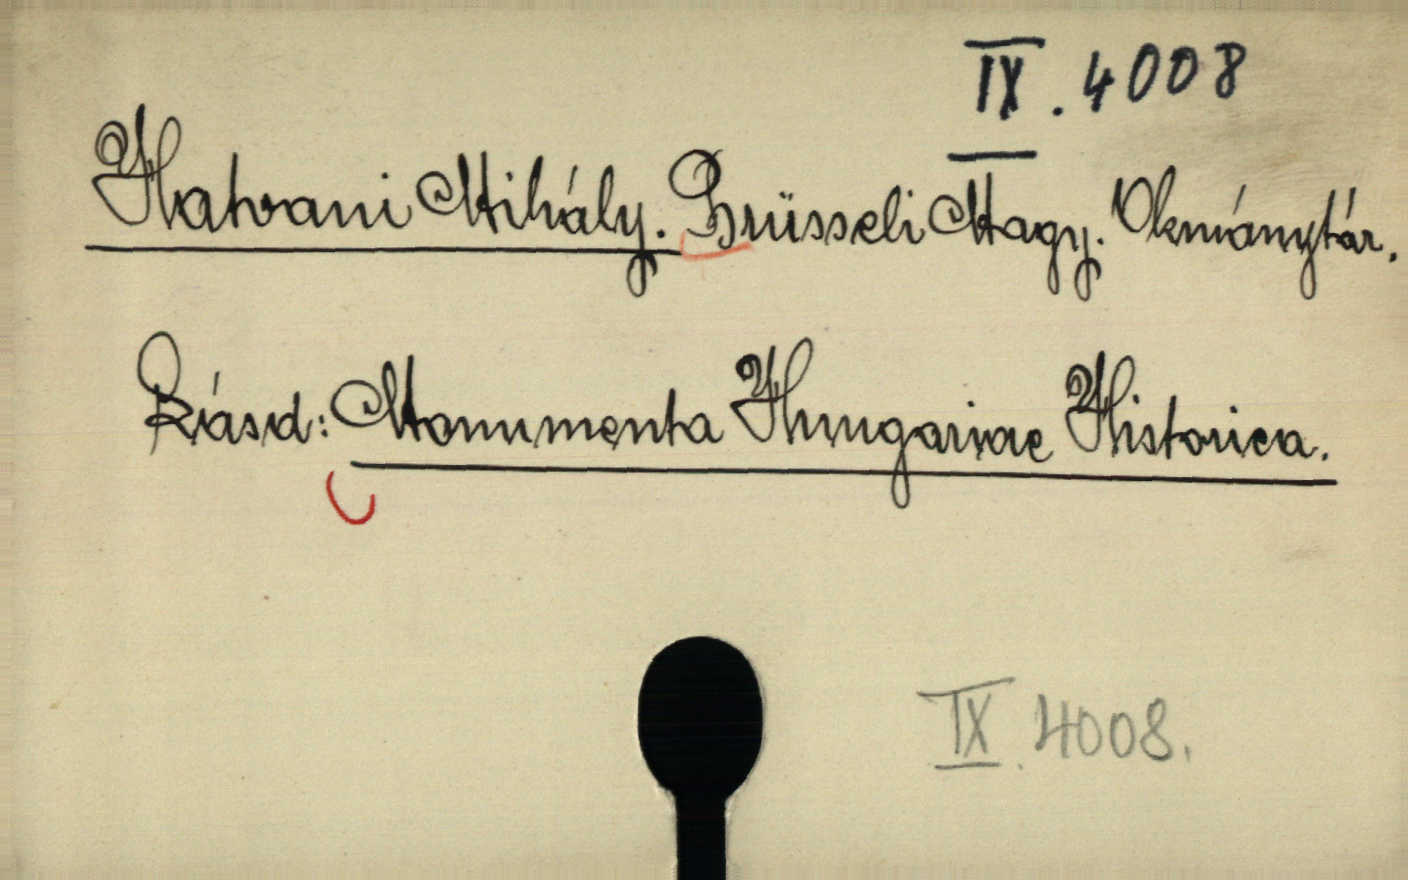 IX. 4008
Hatvani Mihály. Brüsseli Magy. Okmánytár.
Lásd: Monumenta Hungariae Historica.
IX. 4008.